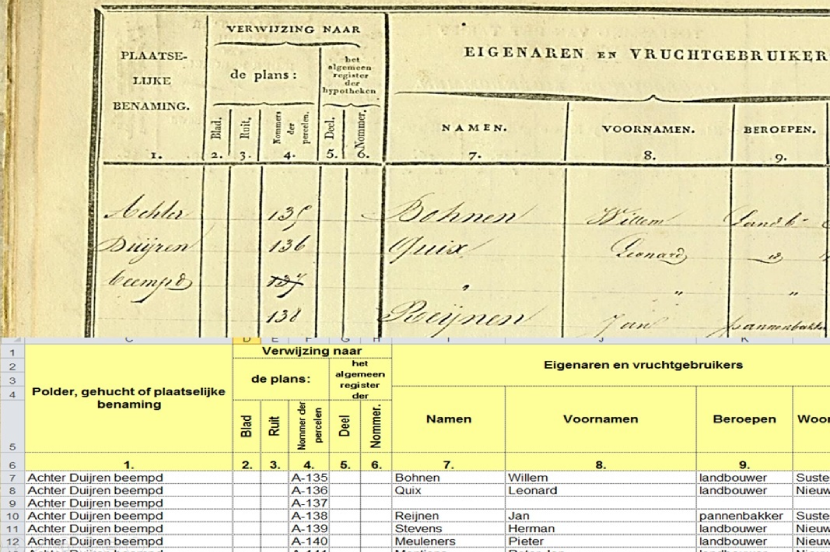 VERWIJZING NAAR
PLAATSE-
LIJKE
BENAMING.
de plans:
het
algemeen
register
der
hypotheken
EIGENAREN EN VRUCHTGEBRUIKER
Blad.
Ruit.
Nommers
der
perceelen.
Deel.
Nommer.
NAMEN.
VOORNAMEN.
BEROEPEN.
1. 2. 3. 4. 5. 6. 7. 8. 9.
Achter 135 Bohnen Willem Landb
Duijren 136 Quix Leonard id
beempd 137 " " "
138 Reijnen Jan pannenbakker
C D E F G H I J K
1 Verwijzing naar
2 het
3 de plans: algemeen
register
4 der
Eigenaren en vruchtgebruikers
Polder, gehucht of plaatselijke
benaming
Blad
Ruit
Nommer der
percelen
Deel
Nommer.
5 Namen Voornamen Beroepen Woo
6 1. 2. 3. 4. 5. 6. 7. 8. 9.
7 Achter Duijren beempd A-135 Bohnen Willem landbouwer Suste
8 Achter Duijren beempd A-136 Quix Leonard landbouwer Nieuw
9 Achter Duijren beempd A-137
10 Achter Duijren beempd A-138 Reijnen Jan pannenbakker Suste
11 Achter Duijren beempd A-139 Stevens Herman landbouwer Nieuw
12 Achter Duijren beempd A-140 Meuleners Pieter landbouwer Nieuw